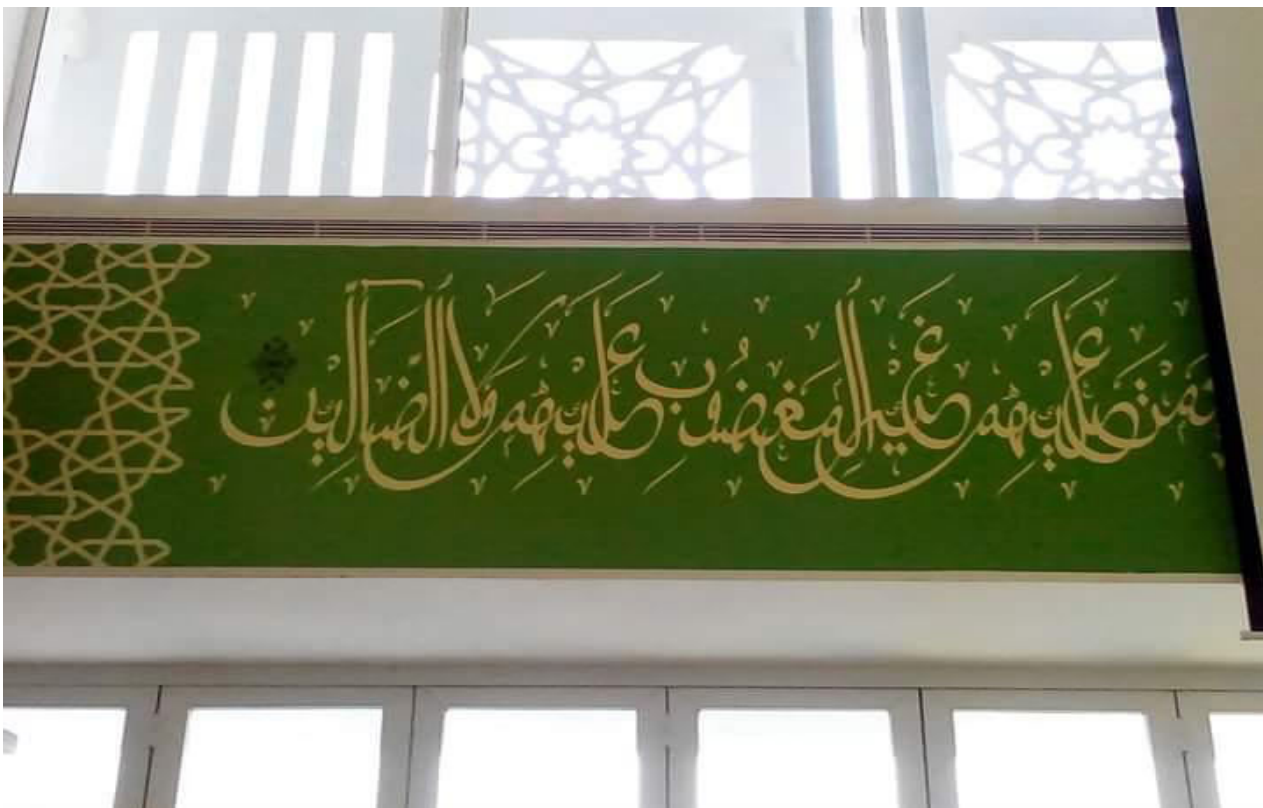 عليهم غير المغضوب عليهم ولا الضالين